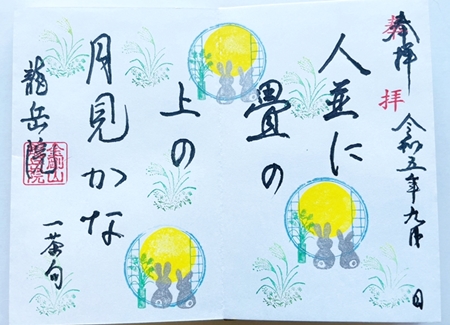 奉拝
拝
令和五年九月 日
人並に
畳の
上の
月見かな
一茶句
龍岳院